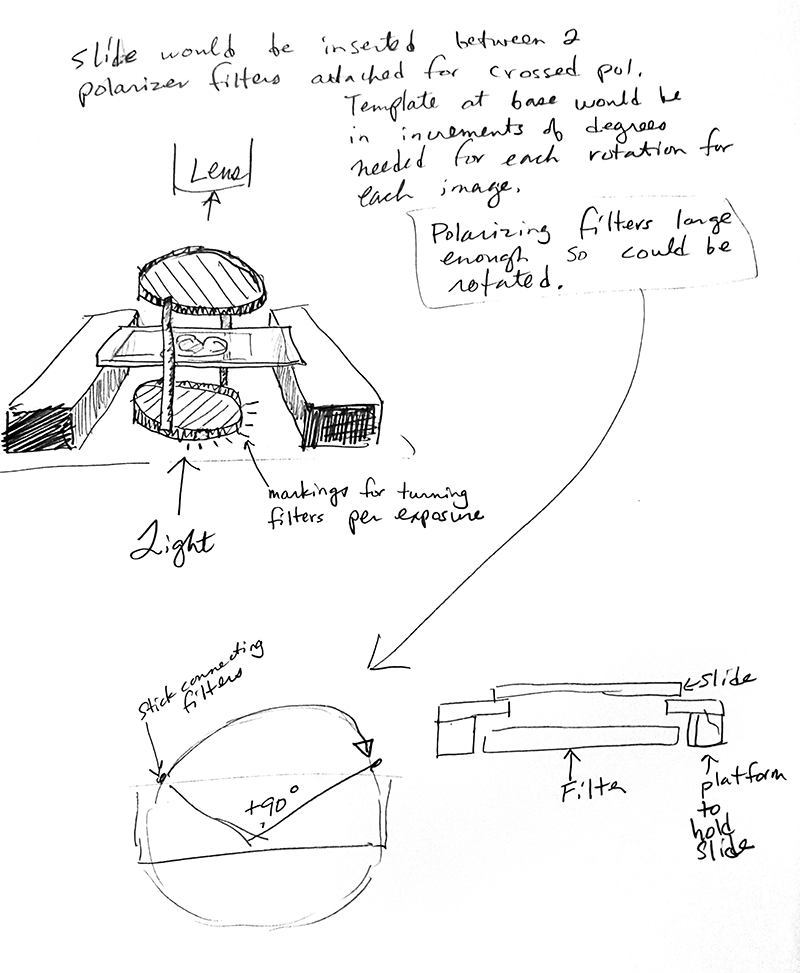 slide would be inserted between 2
polarizer filters attached for crossed pol.
Template at base would be
in increments of degrees
needed for each rotation for
each image.
Lens
Polarizing filters large
enough so could be
rotated.
markings for turning
filters per exposure
Light
stick connecting
filters
+90°
slide
Filter
platform
to
hold
slide